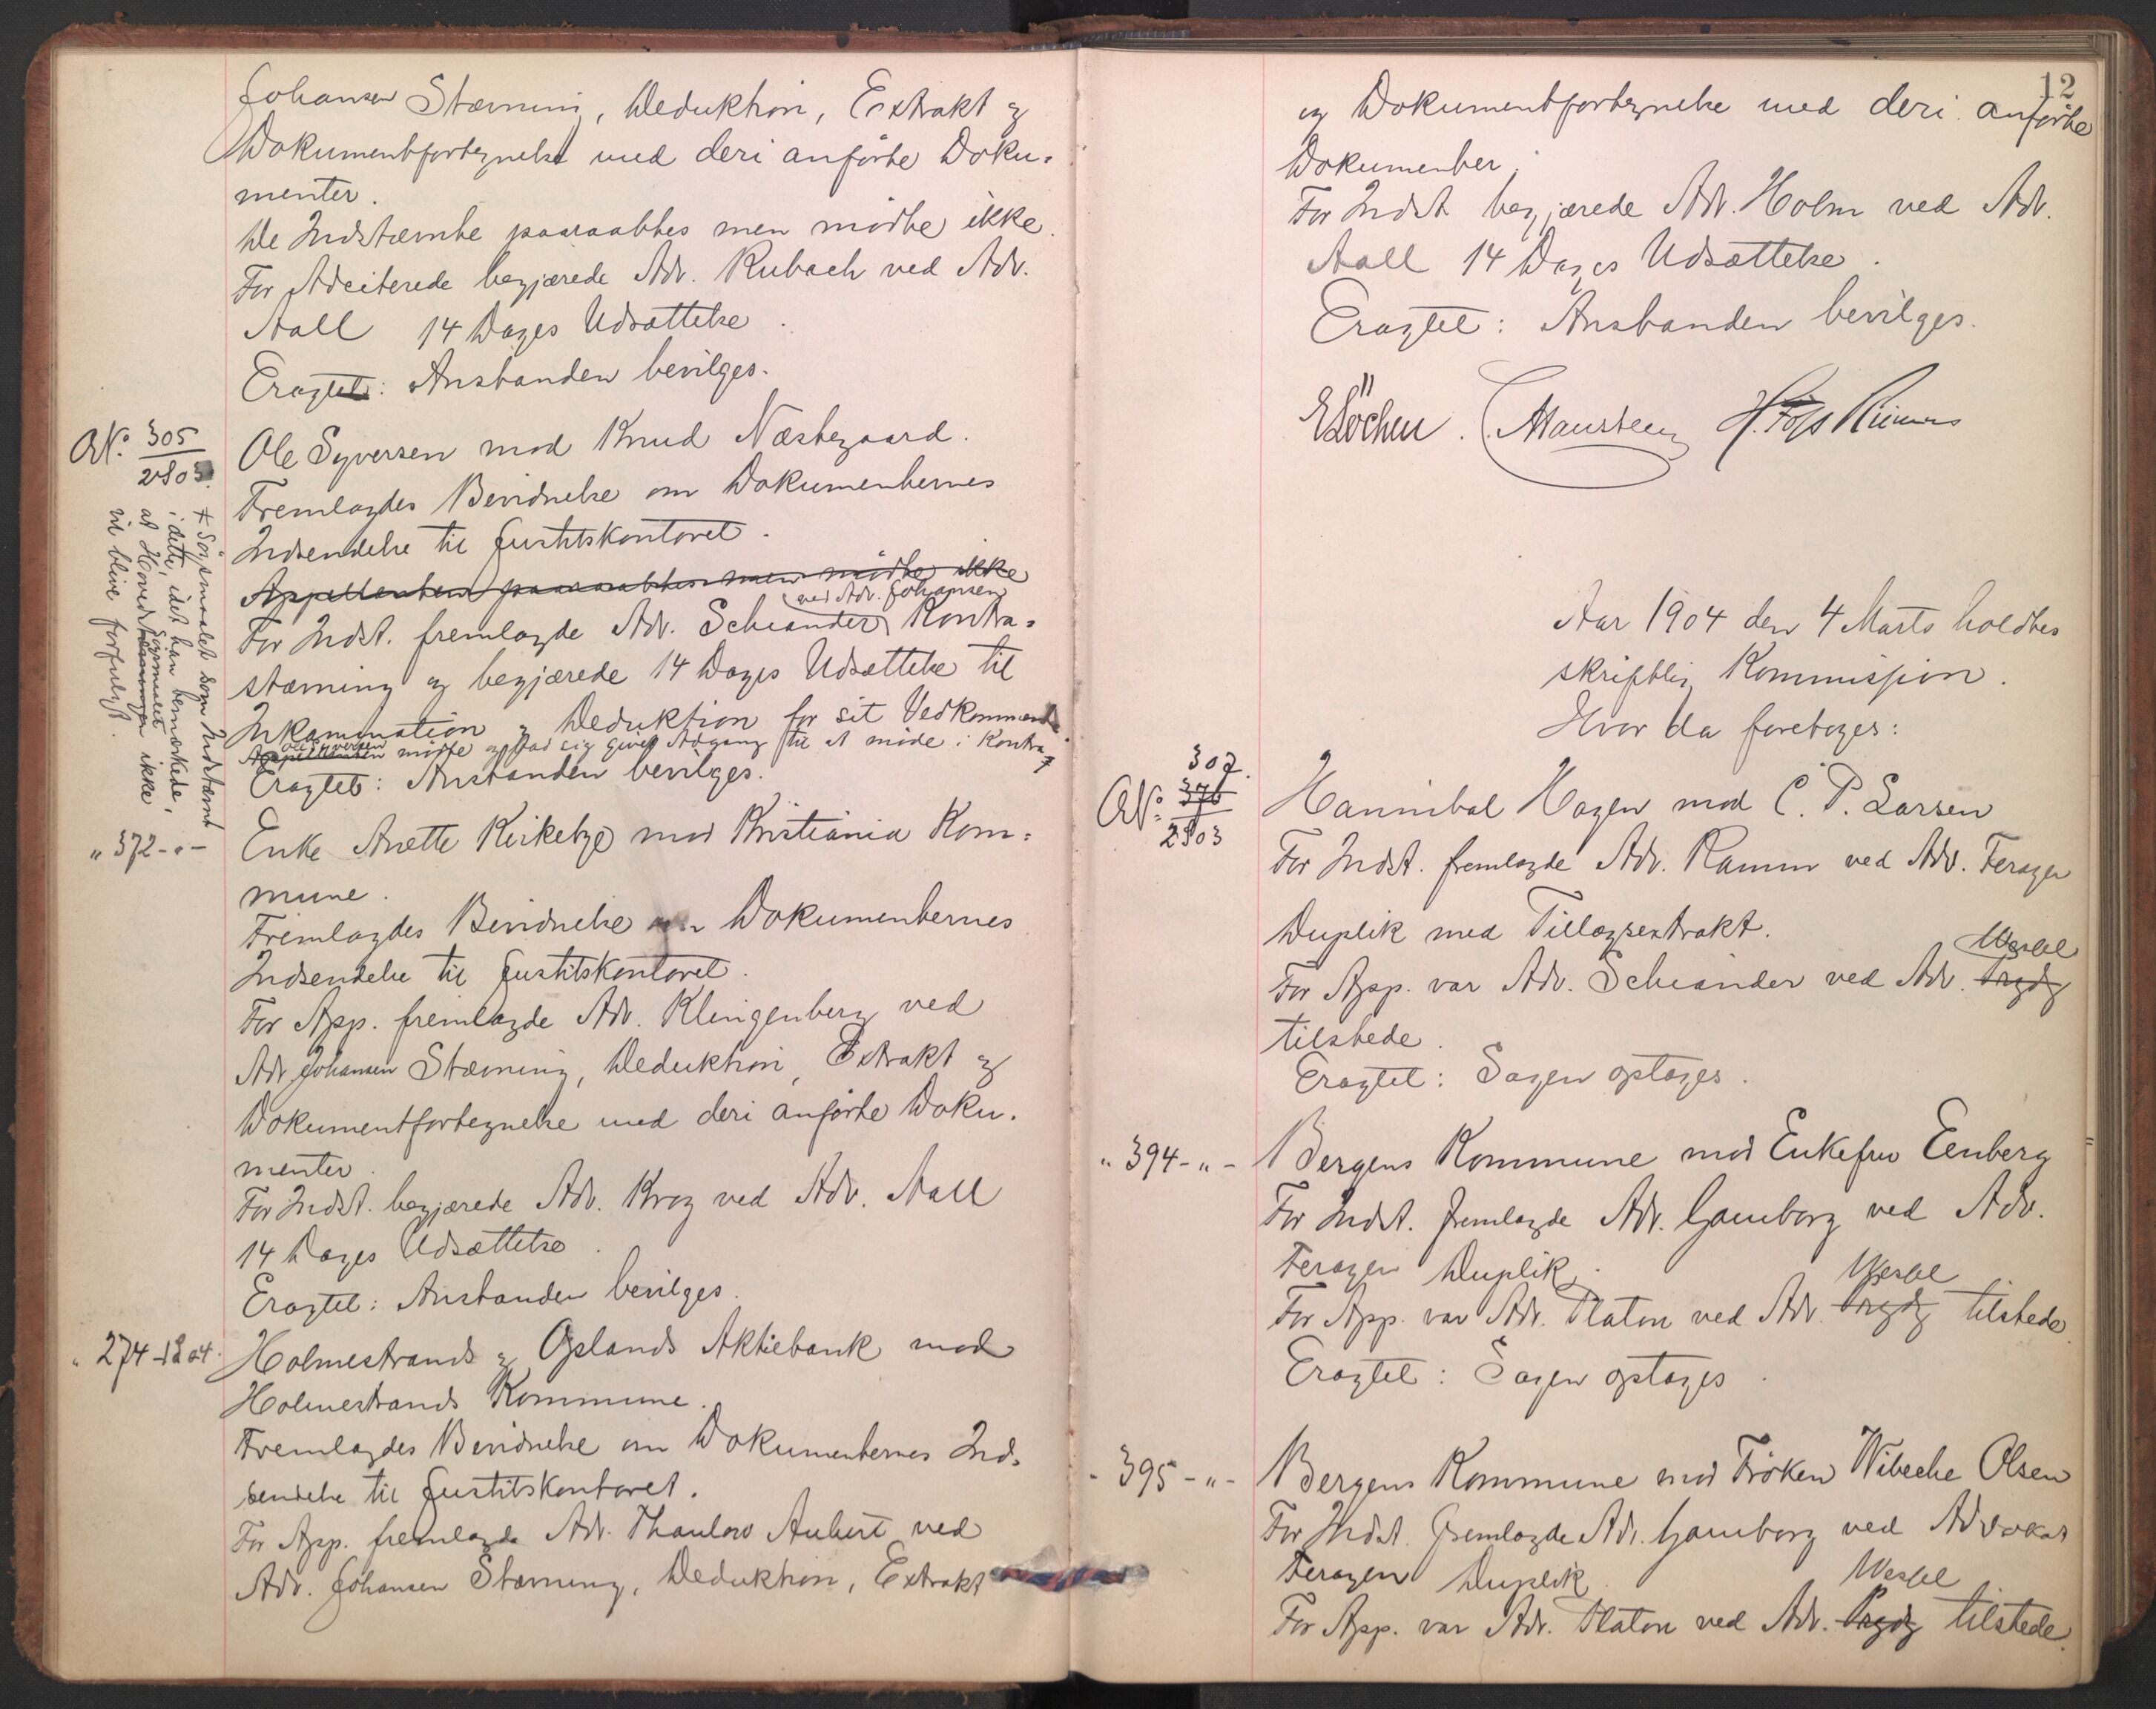 Johansen Stævning, Deduktion, Extrakt og
Dokumentfortegnelse med deri anførte Doku-
menter.
De Indstævnte paaraabtes men mødte ikke.
For Adciterede begjærede Adv. Rubach ved Adv.
Aall 14 Dages Udsættelse.
Eragtet: Anstanden bevilges.
No. 305/2 1903.
Ole Syversen mod Knud Næstegaard.
Fremlagdes Bevidnelse om Dokumenternes
Indsendelse til Justitskontoret.
Appellanten paaraabtes men mødte ikke
ved Adv. Johansen
For Indst. fremlagde Adv. Schiander Kontra-
stævning og begjærede 14 Dages Udsættelse til
Inkamination og Deduktion for sit Vedkommende
Ole Syversen
Appellanten mødte og bad sig givet Adgang til at møde i Kontra-
Eragtet: Anstanden bevilges.
+ Søgsmaalet som Indstævnt
i dette, idet han bemærkede,
Søgsmaalet
at Hovedstævningen ikke
vil blive forfulgt.
" 372 - " -
Enke Anette Kirkebye mod Kristiania Kom-
mune.
Fremlagdes Bevidnelse om Dokumenternes
Indsendelse til Justitskontoret.
For App. fremlagde Adv. Klingenberg ved
Adv. Johansen Stævning, Deduktion, Extrakt og
Dokumentfortegnelse med deri anførte Doku-
menter.
For Indst. begjærede Adv. Krog ved Adv. Aall
14 Dages Udsættelse.
Eragtet: Anstanden bevilges.
" 274 - 1904.
Holmestrands og Oplands Aktiebank mod
Holmestrands Kommune.
Fremlagdes Bevidnelse om Dokumenternes Ind-
sendelse til Justitskontoret.
For App. fremlagde Adv. Thaulow Aubert ved
Adv. Johansen Stævning, Deduktion, Extrakt
12
og Dokumentfortegnelse med deri anførte
Dokumenter.
For Indst. begjærede Adv. Holm ved Adv.
Aall 14 Dages Udsættelse.
Eragtet: Anstanden bevilges.
E Løchen.
Aar 1904 den 4 Marts holdtes
skriftlig Kommission.
Hvor da foretoges:
307.
No. 376/2 1903
Hannibal Hagen mod C. P. Larsen
For Indst. fremlagde Adv. Ramm ved Adv. Feragen
Duplik med Tillægsextrakt.
Wessel
For App. var Adv. Schiander ved Adv.
tilstede.
Eragtet: Sagen optages.
" 394 - " -
Bergens Kommune mod Enkefru Eenberg
For Indst. fremlagde Adv. Gamborg ved Adv.
Feragen Duplik.
Wessel
For App. var Adv. Platou ved Adv. tilstede.
Eragtet: Sagen optages.
- 395 - " -
Bergens Kommune mod Frøken Wibeche Olsen
For Indst. fremlagde Adv. Gamborg ved Advokat
Feragen Duplik
Wessel
For App. var Adv. Platou ved Adv. tilstede.